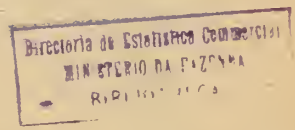 Directoria de Estatistica Commercial
MINISTERIO DA FAZENDA